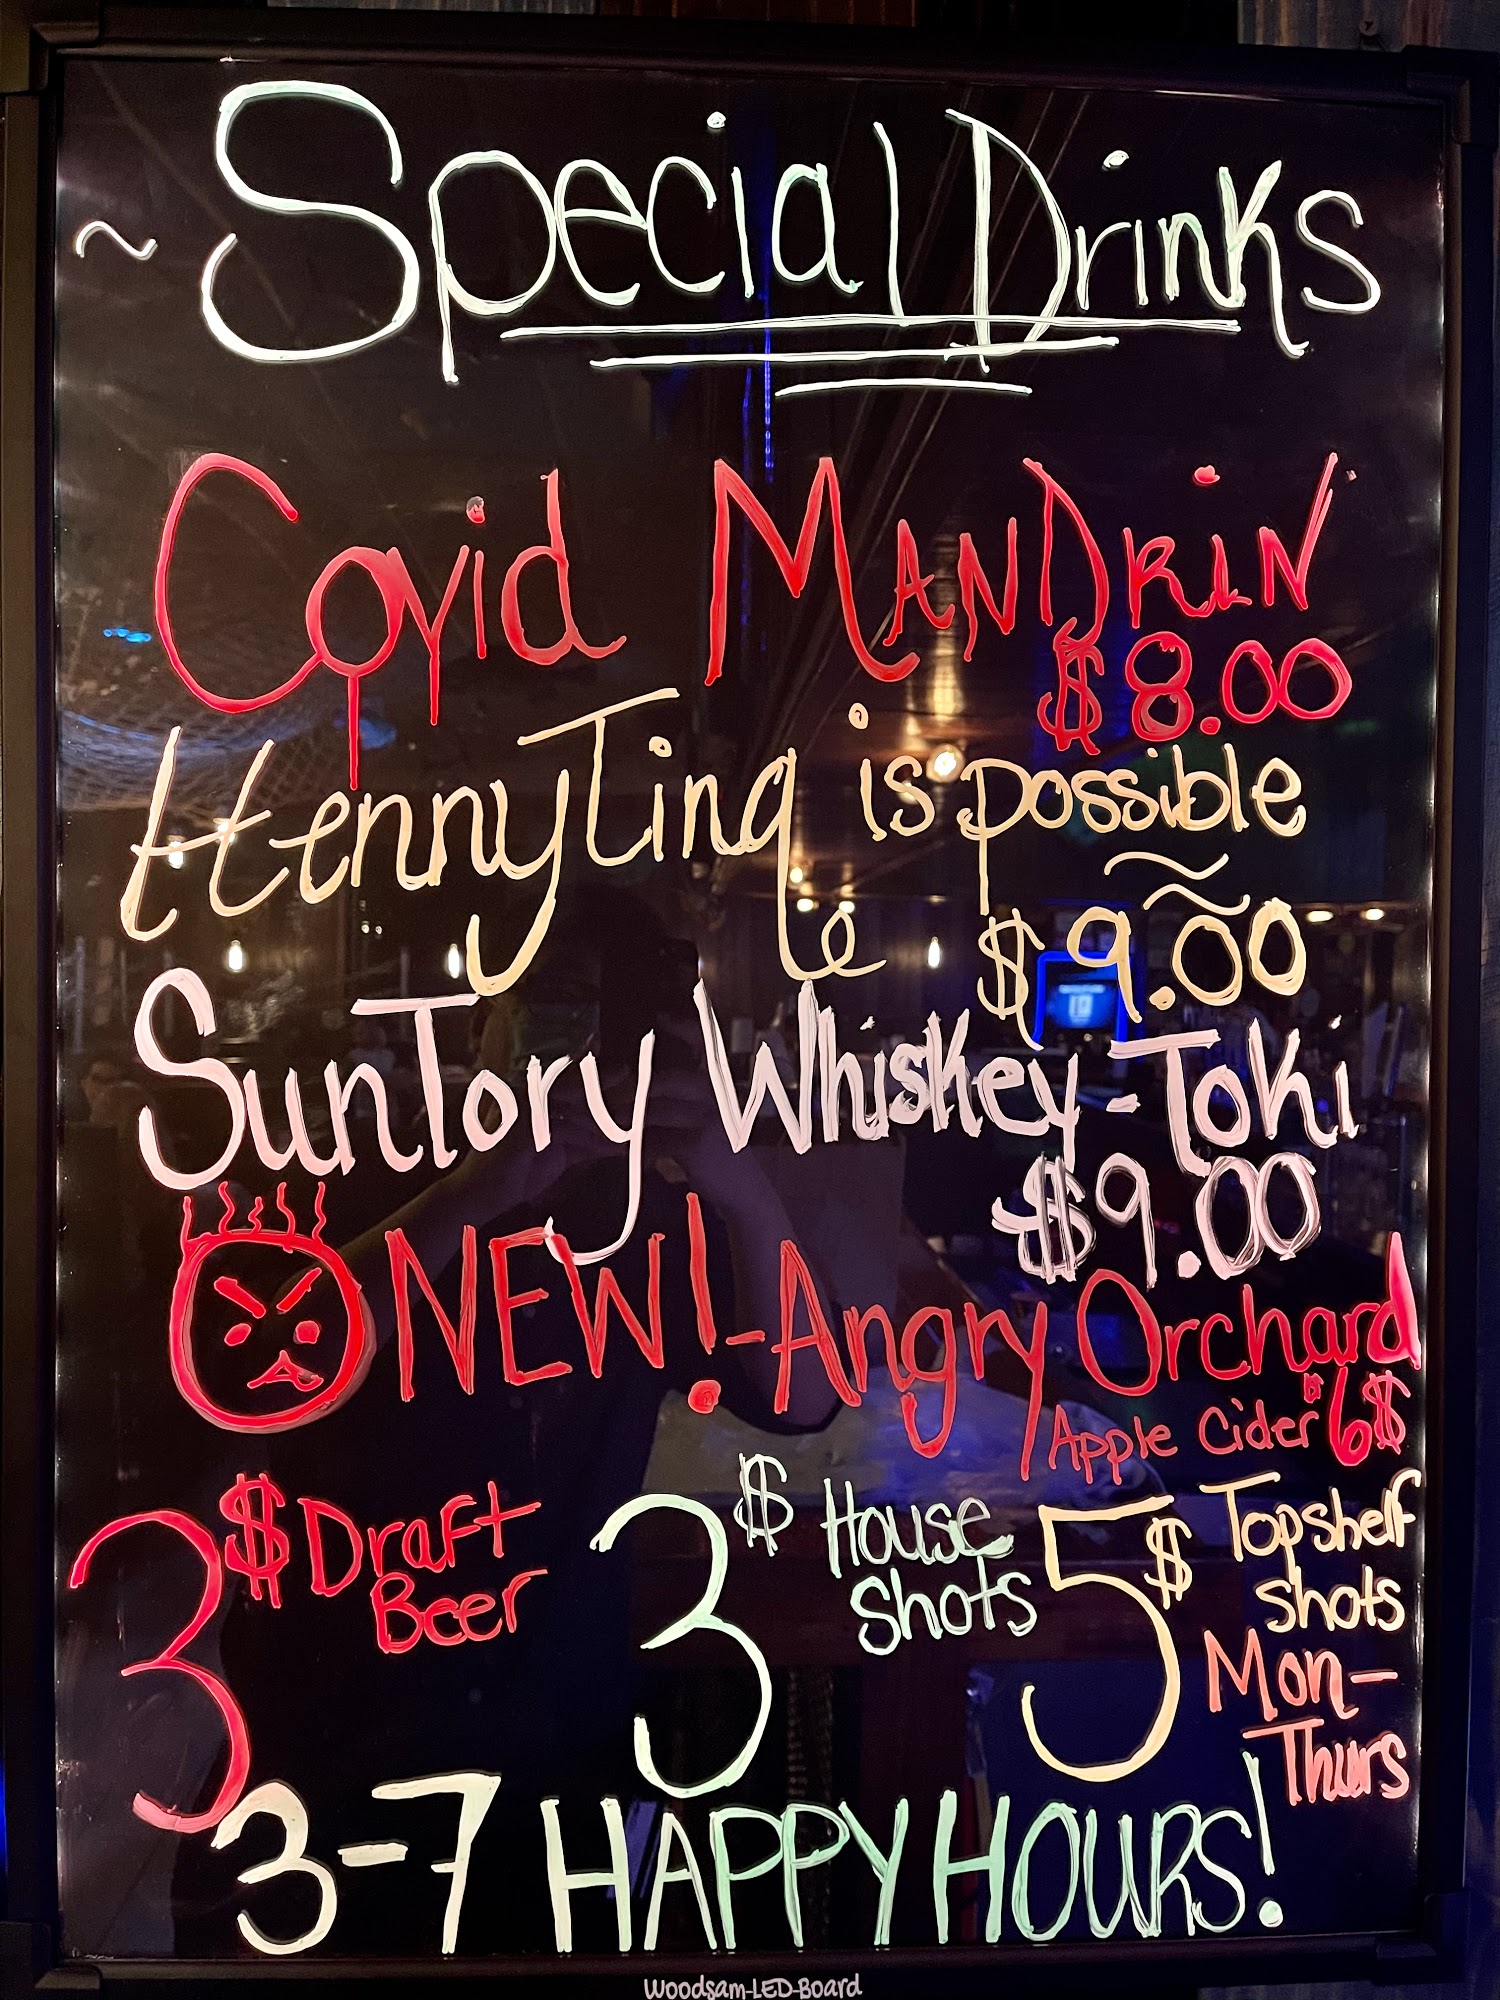 ~ Special Drinks
Covid MANDRiN
$8.00
HennyTing is possible
$9.00
SunTory Whiskey - Toki
$9.00
NEW! - Angry Orchard
Apple Cider "6$
3$ Draft Beer
3$ House Shots
5$ Topshelf shots
Mon-
Thurs
3-7 HAPPY HOURS!
Woodsam-LED-Board